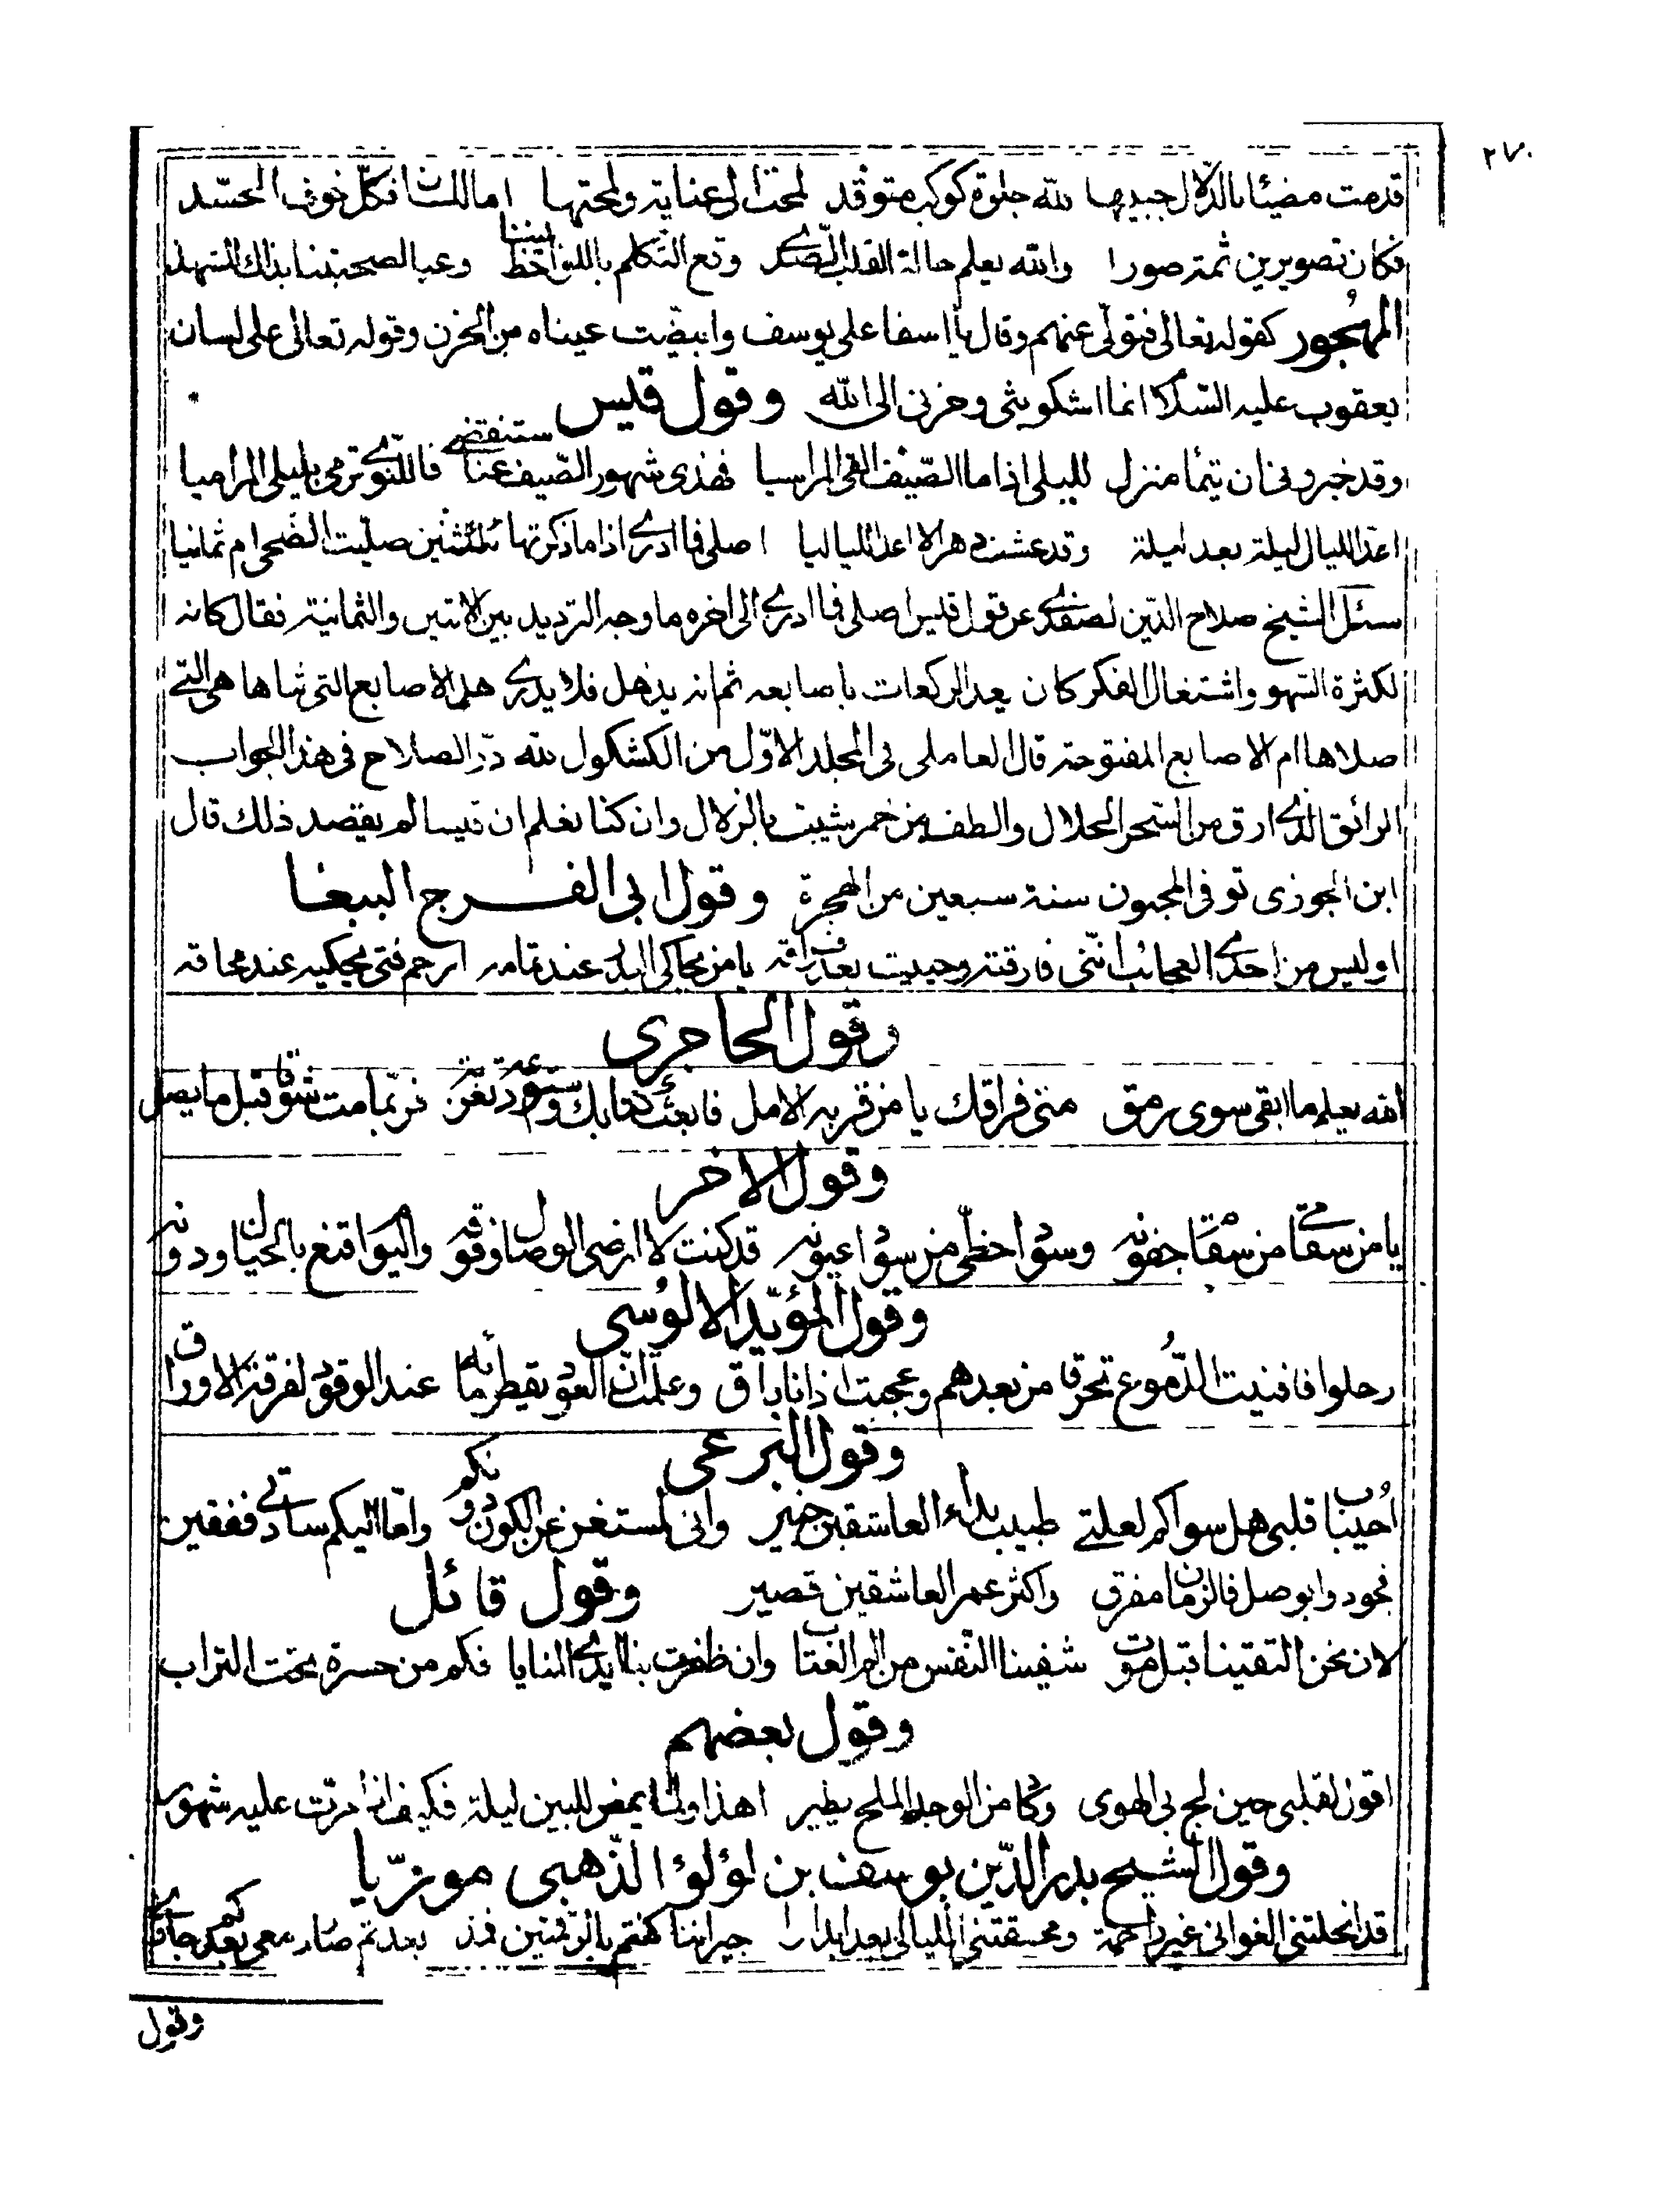 ٢٧٠
قدمت مضيئا بالدلال جبيبها لله جلوة كوكب متوقد لمحت الى عناية ولمحتها اما اللسان فكل خوف الحسد
فكان تصويرين ثمة صورا والله يعلم حالة القلب الصدى وقع التكلم باللواحظ بيننا وعيا لصحبتنا بذاك المشهد
المهجور كقوله تعالى فتولى عنهم وقال يا اسفا على يوسف وابيضت عيناه من الحزن وقوله تعالى على لسان
يعقوب عليه السلام انما اشكو بثى وحزنى الى الله وقول قيس
وقد خبرونى ان تيما منزل لليلى اذا ما الصيف القى المراسيا فهذى شهور الصيف عنا ستنقضى فما للنوى ترمى بليلى المراميا
اعد الليالى ليلة بعد ليلة وقد عشت دهرا لا اعد اللياليا اصلى فما ادرى اذا ما ذكرتها ءاثنتين صليت الضحى ام ثمانيا
سئل الشيخ صلاح الدين الصفدى عن قول قيس اصلى فما ادرى الى اخره ما وجه الترديد بين الاثنين والثمانية فقال كانه
لكثرة السهو واشتغال الفكر كان يعد الركعات باصابعه ثم انه يذهل فلا يدرى هل الاصابع التى ثناها هى التى
صلاها ام الاصابع المفتوحة قال العاملى فى المجلد الاول من الكشكول لله در الصلاح فى هذا الجواب
الرائق الذى ارق من السحر الحلال والطف من خمر شيبت بالزلال وان كنا نعلم ان قيسا لم يقصد ذلك قال
ابن الجوزى توفى المجنون سنة سبعين من الهجرة وقول ابى الفرج الببغا
اوليس من احدى العجائب اننى فارقته وحييت بعد فراقه يا من يحاكى البدر عند تمامه ارحم فتى يحكيه عند محاقه
وقول الحاجرى
الله يعلم ما ابقى سوى رمق منى فراقك يا من قربه الامل فابعث كتابك واستودعه تعزية فربما مت شوقا قبل ما يصل
وقول الاخر
يا من سقامى من سقام جفونه وسواد حظى من سواد عيونه قد كنت لا ارضى الوصال وفوقه واليوم اقنع بالخيال ودونه
وقول المؤيد الالوسى
رحلوا فافنيت الدموع تحرقا من بعدهم وعجبت اذ انا باق وعلمت ان العود يقطر ماؤه عند الوقود لفرقة الاوراق
وقول البرعى
احباب قلبى هل سواكم لعلتى طبيب بداء العاشقين خبير وانى لمستغن عن الكون دونكم واما اليكم سادتى ففقير
نجودوا بوصل فالزمان مفرق واكثر عمر العاشقين قصير وقول قائل
لان نحن التقينا قبل موت شفينا النفس من الم العتاب وان ظفرت بنا ايدى المنايا فكم من حسرة تحت التراب
وقول بعضهم
اقول لقلبى حين لج بى الهوى وكاد من الوجد الملح يطير اهذا ولما يمض للبين ليلة فكيف اذا مرت عليه شهور
وقول الشيخ بدر الدين يوسف بن لؤلؤ الذهبى موريا
قد انحلتنى الغوانى غير راحمة ومحقتنى الليالى بعد ابدار جيراننا كنتم بالرقمتين فمذ بعدتم صار دمعى بعدكم جارى
وقول